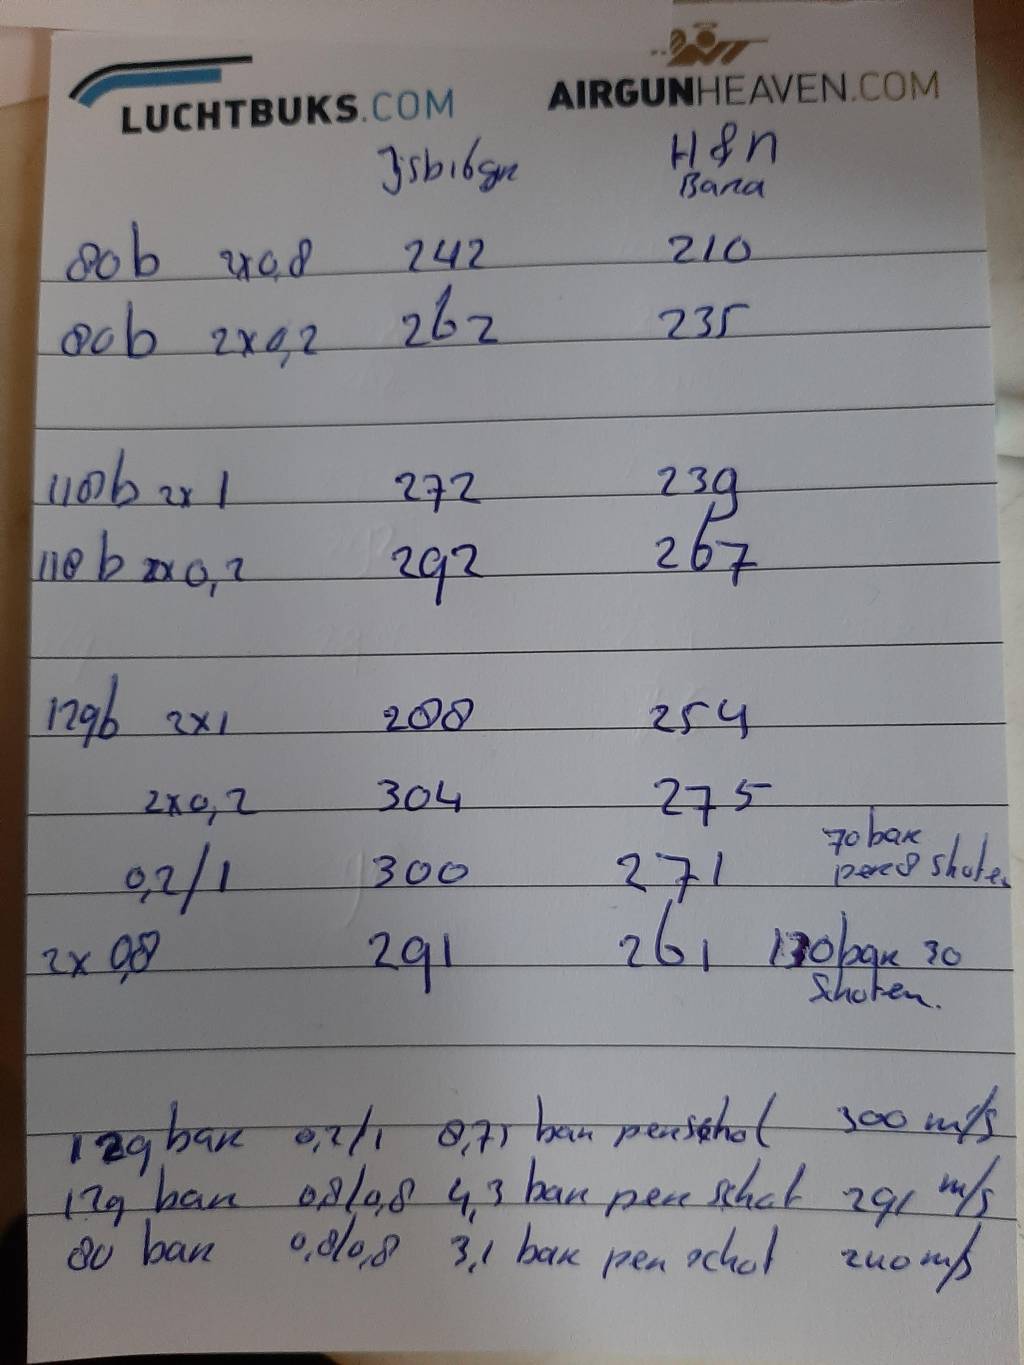 LUCHTBUKS.COM AIRGUNHEAVEN.COM
Jsb16gr H&N
Bara
80b 2x0,8 242 210
80b 2x0,2 262 235
110b 2x1 272 239
110b 2x0,2 292 267
129b 2x1 288 254
2x0,2 304 275
0,2/1 300 271 70bar
per 8 shoten
2x 0,8 291 261 130bar 30
schoten.
129 bar 0,2/1 8,75 bar per schot 300 m/s
129 bar 0,8/0,8 4,3 bar per schot 291 m/s
80 bar 0,8/0,8 3,1 bar per schot 240 m/s